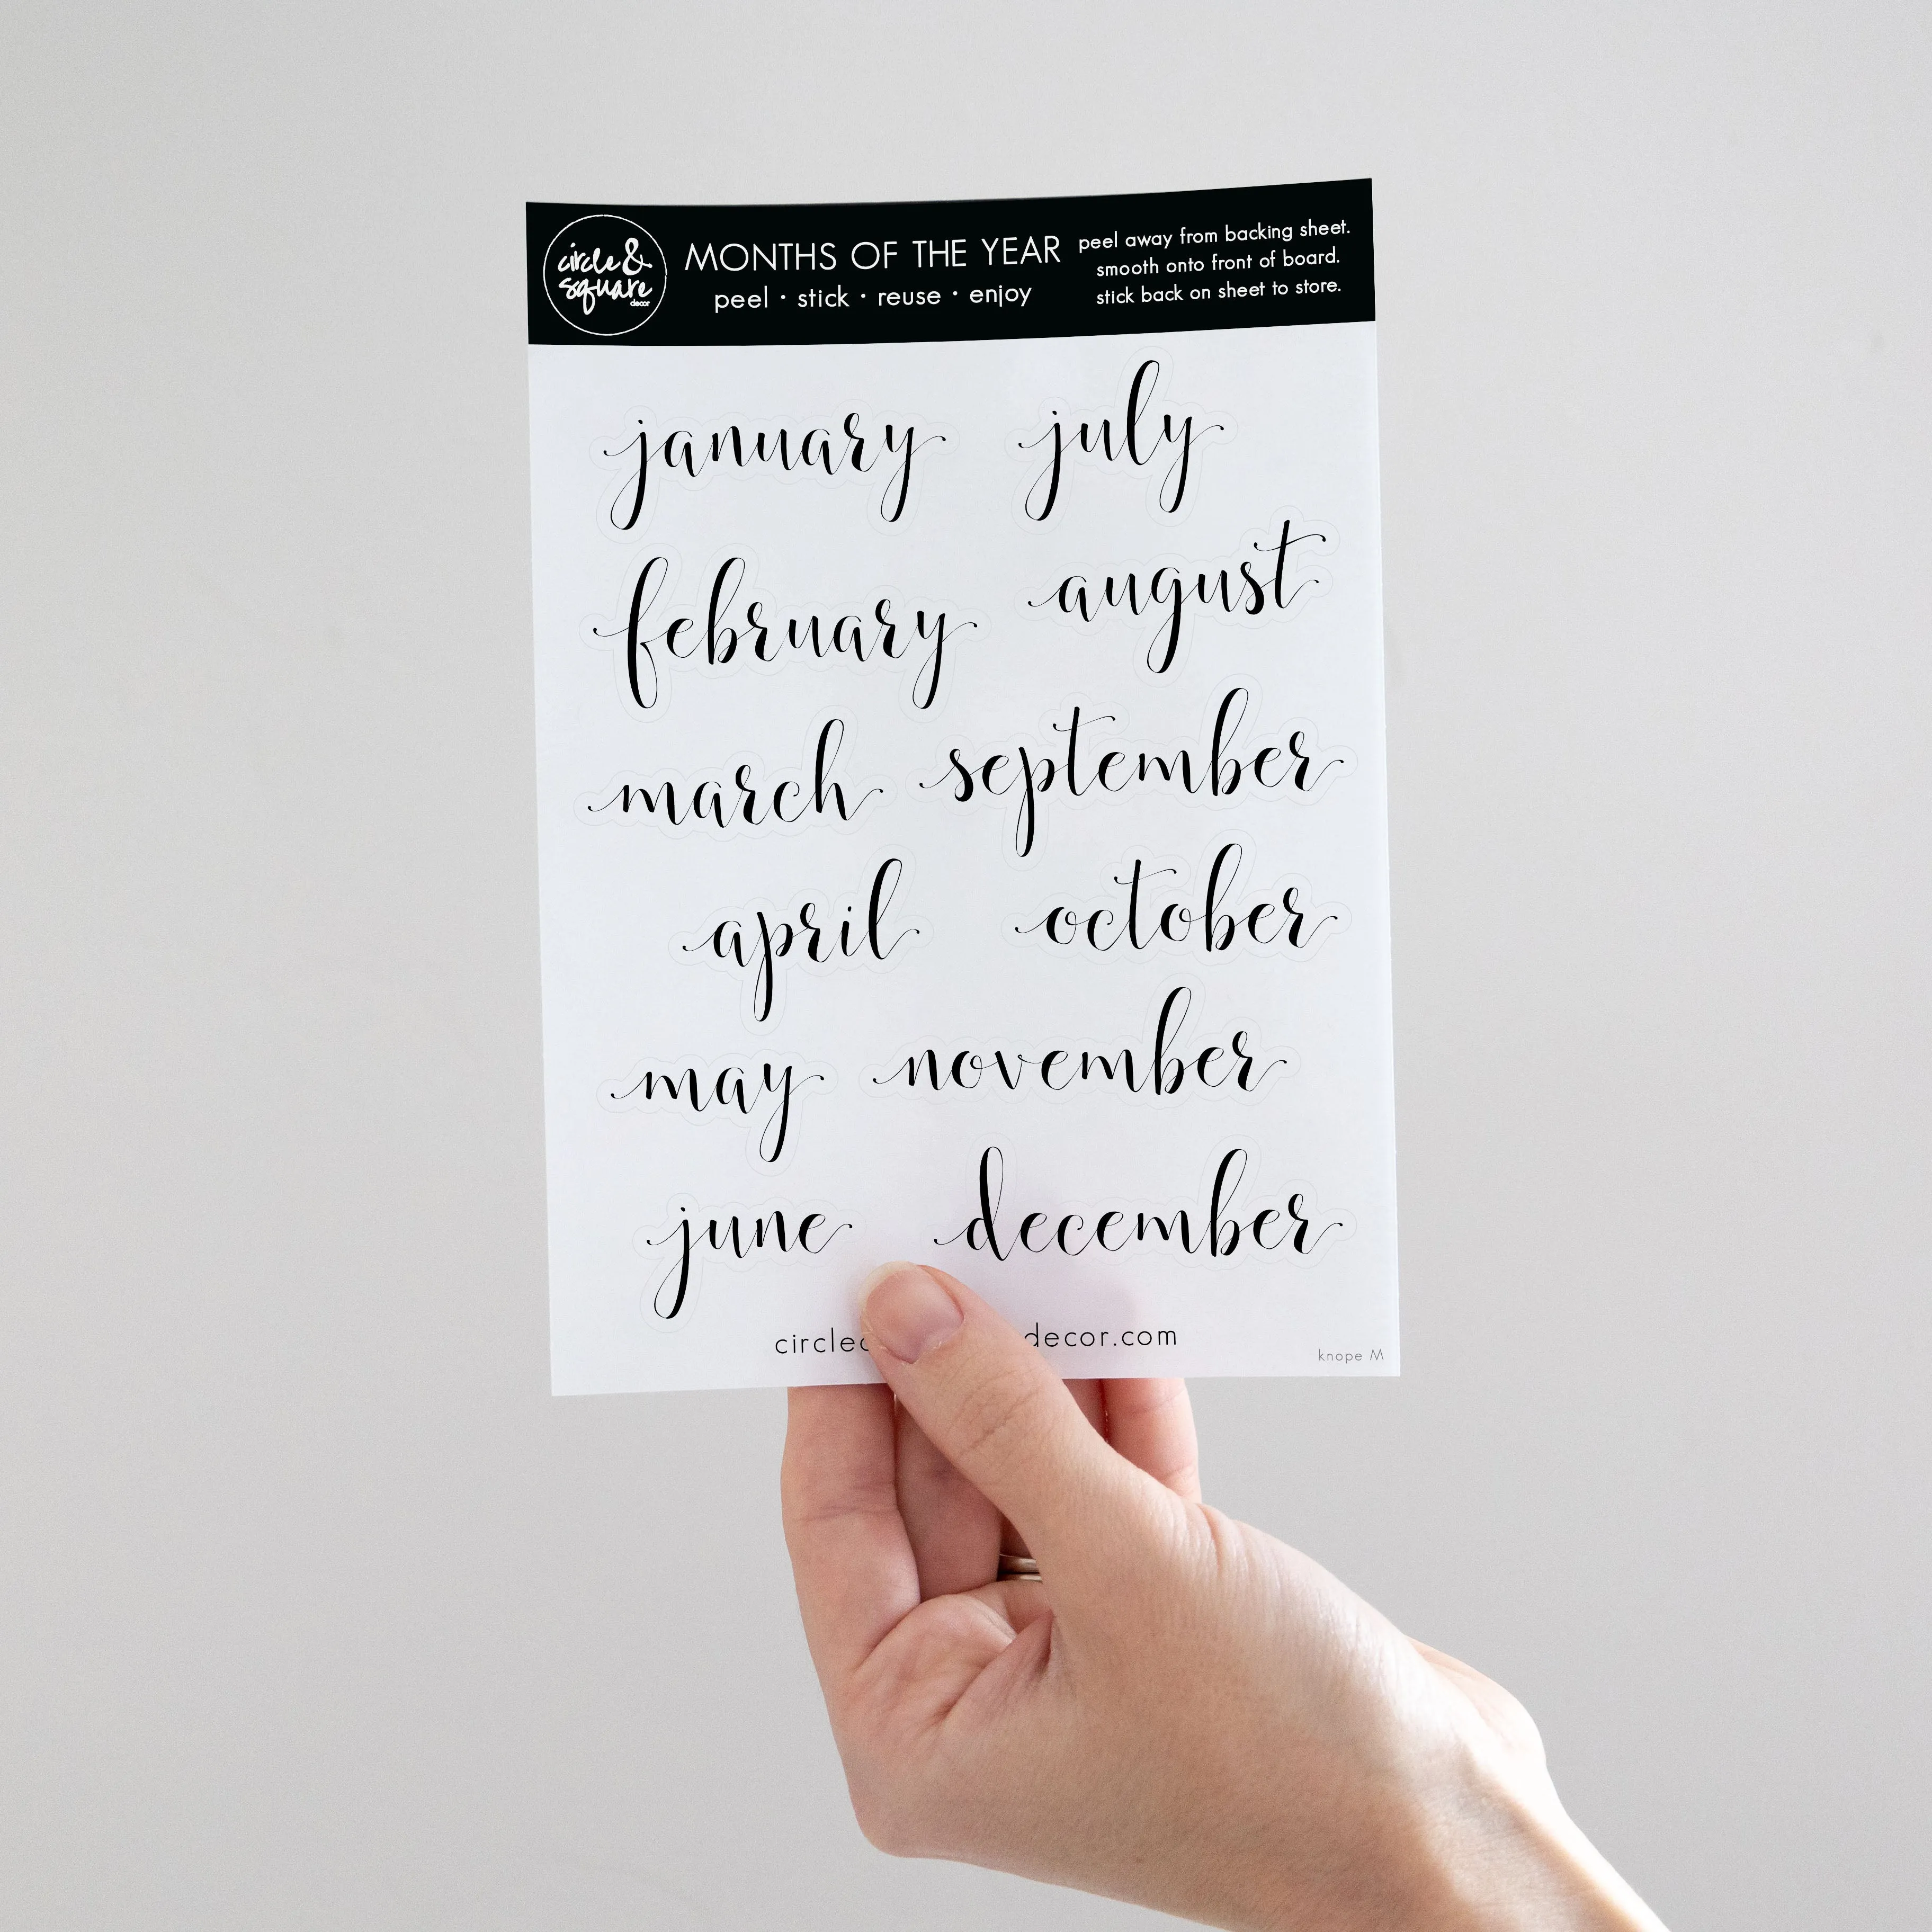 circle &
square
decor
MONTHS OF THE YEAR
peel · stick · reuse · enjoy
peel away from backing sheet.
smooth onto front of board.
stick back on sheet to store.
january
february
march
april
may
june
july
august
september
october
november
december
decor.com
knope M